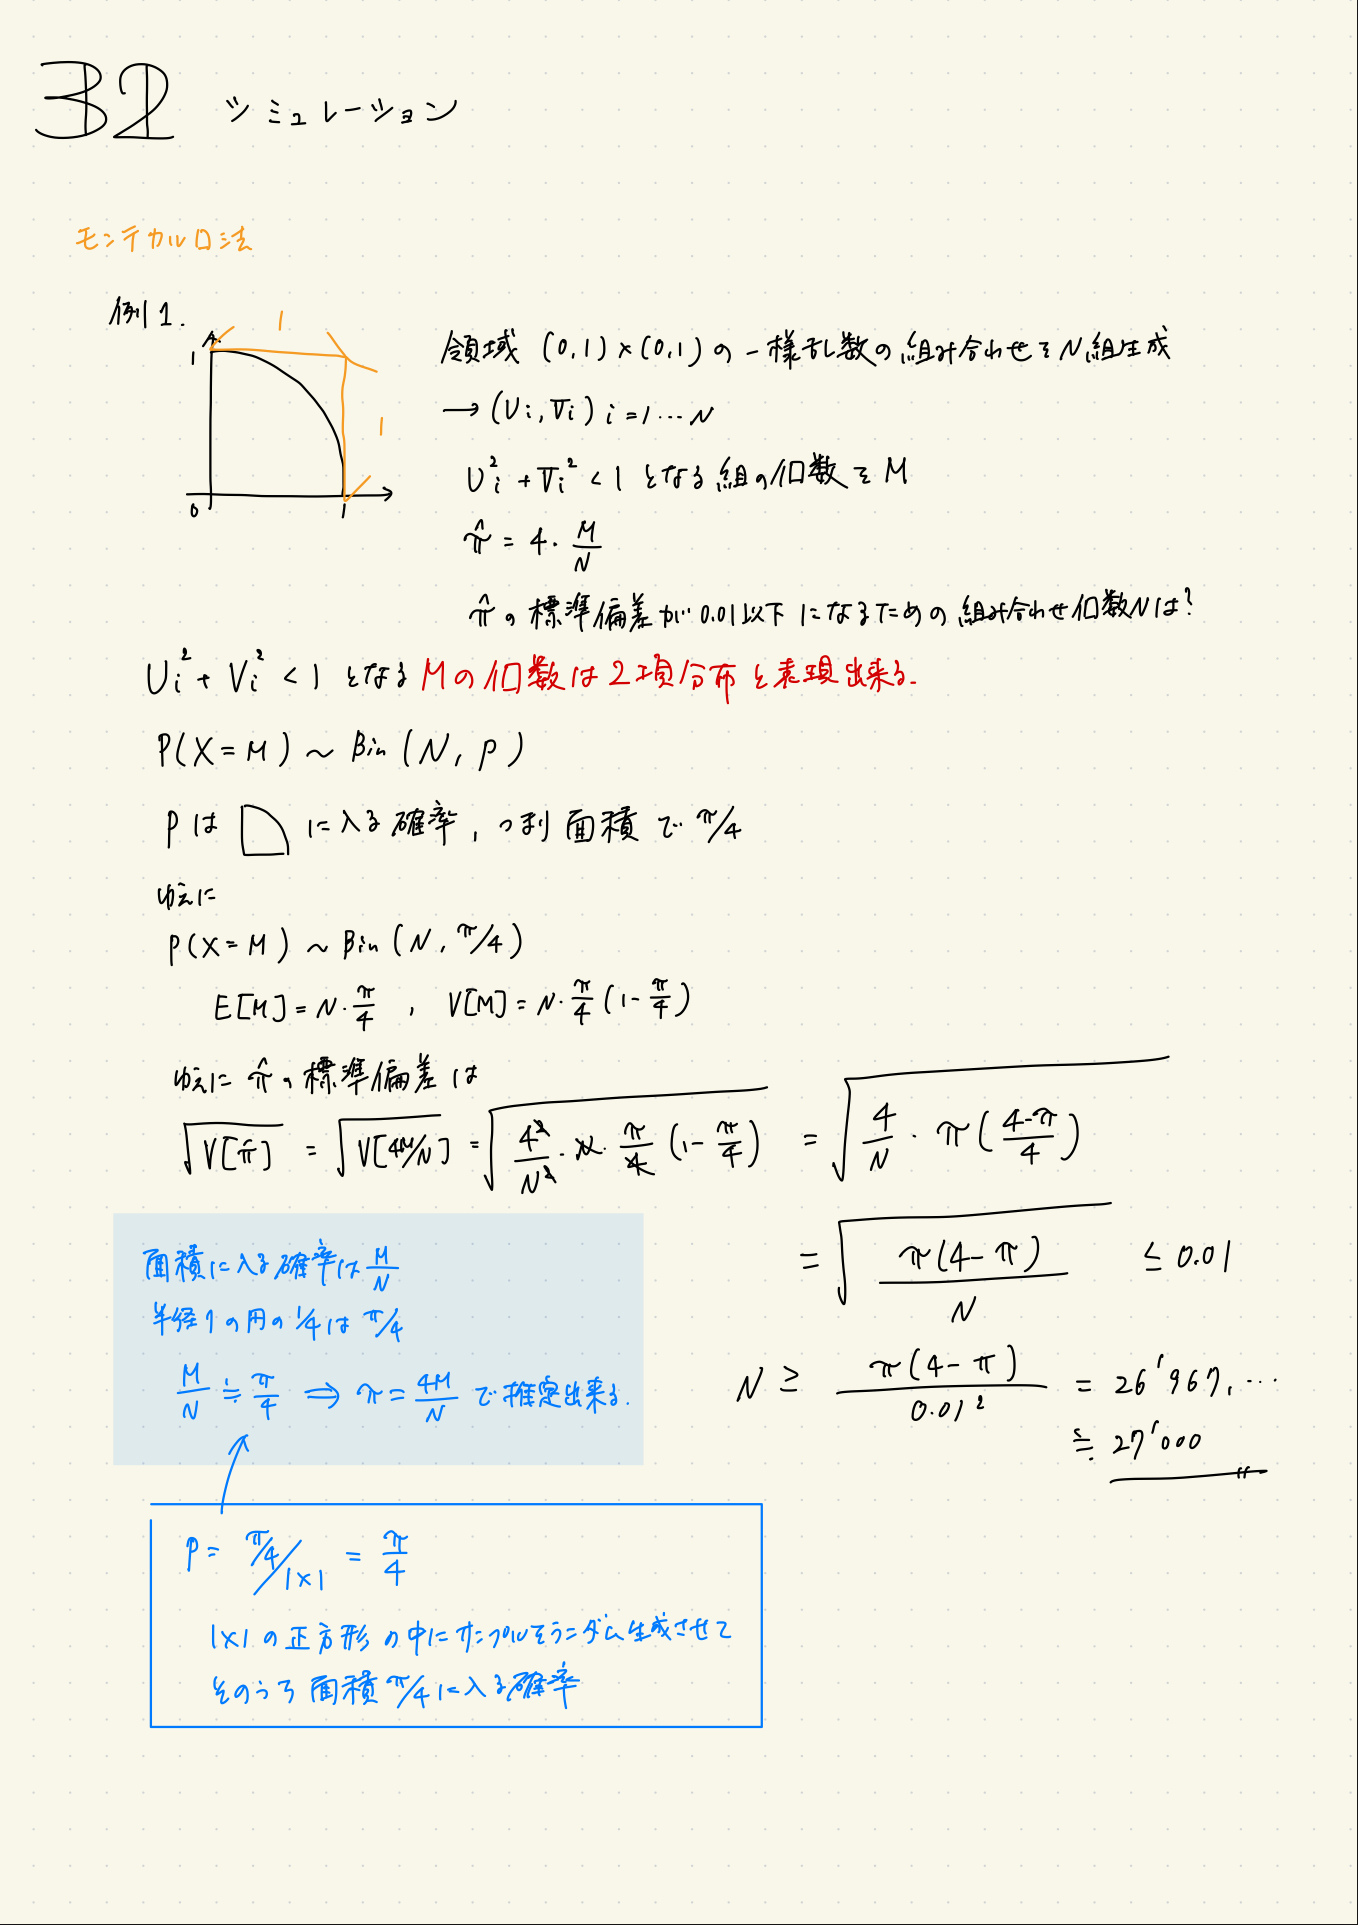 32 シミュレーション
モンテカルロ法
例1.
1
1
1
0
1
領域 (0,1)×(0,1)の一様乱数の組み合わせをN組生成
→(Ui,Vi) i=1…N
Ui²+Vi²<1となる組の個数をM
π̂ = 4・M/N
π̂の標準偏差が0.01以下になるための組み合わせ個数Nは?
Ui²+Vi²<1となるMの個数は2項分布と表現出来る.
P(X=M)~Bin(N,p)
pは に入る確率,つまり面積でπ/4
ゆえに
P(X=M)~Bin(N,π/4)
E[M]=N・π/4 , V[M]=N・π/4(1-π/4)
ゆえにπ̂の標準偏差は
√V[π̂] = √V[4M/N] = √(4²/N²・N・π/4(1-π/4)) = √(4/N・π((4-π)/4))
= √(π(4-π)/N) ≦ 0.01
N ≧ π(4-π)/0.01² = 26'967,…
≒ 27'000
面積に入る確率はM/N
半径1の円の1/4はπ/4
M/N≒π/4 ⇒ π=4M/N で推定出来る.
P= π/4/1×1 = π/4
1×1の正方形の中にサンプルをランダム生成させて
そのうち面積π/4に入る確率